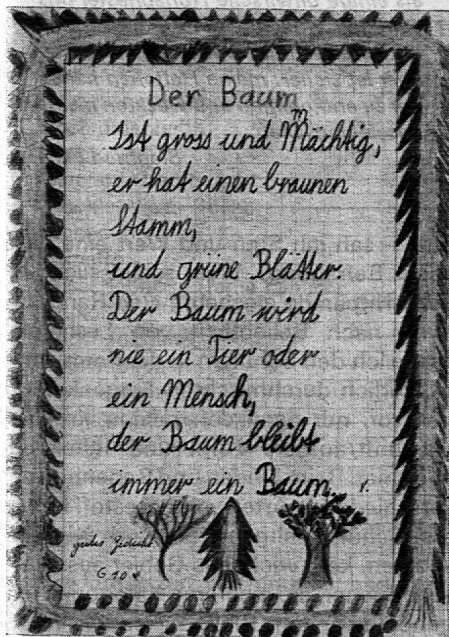 Der Baum
Ist gross und Mächtig,
m
er hat einen braunen
Stamm,
und grüne Blätter.
Der Baum wird
nie ein Tier oder
ein Mensch,
der Baum bleibt
immer ein Baum. r.
gutes Gedicht
G 10